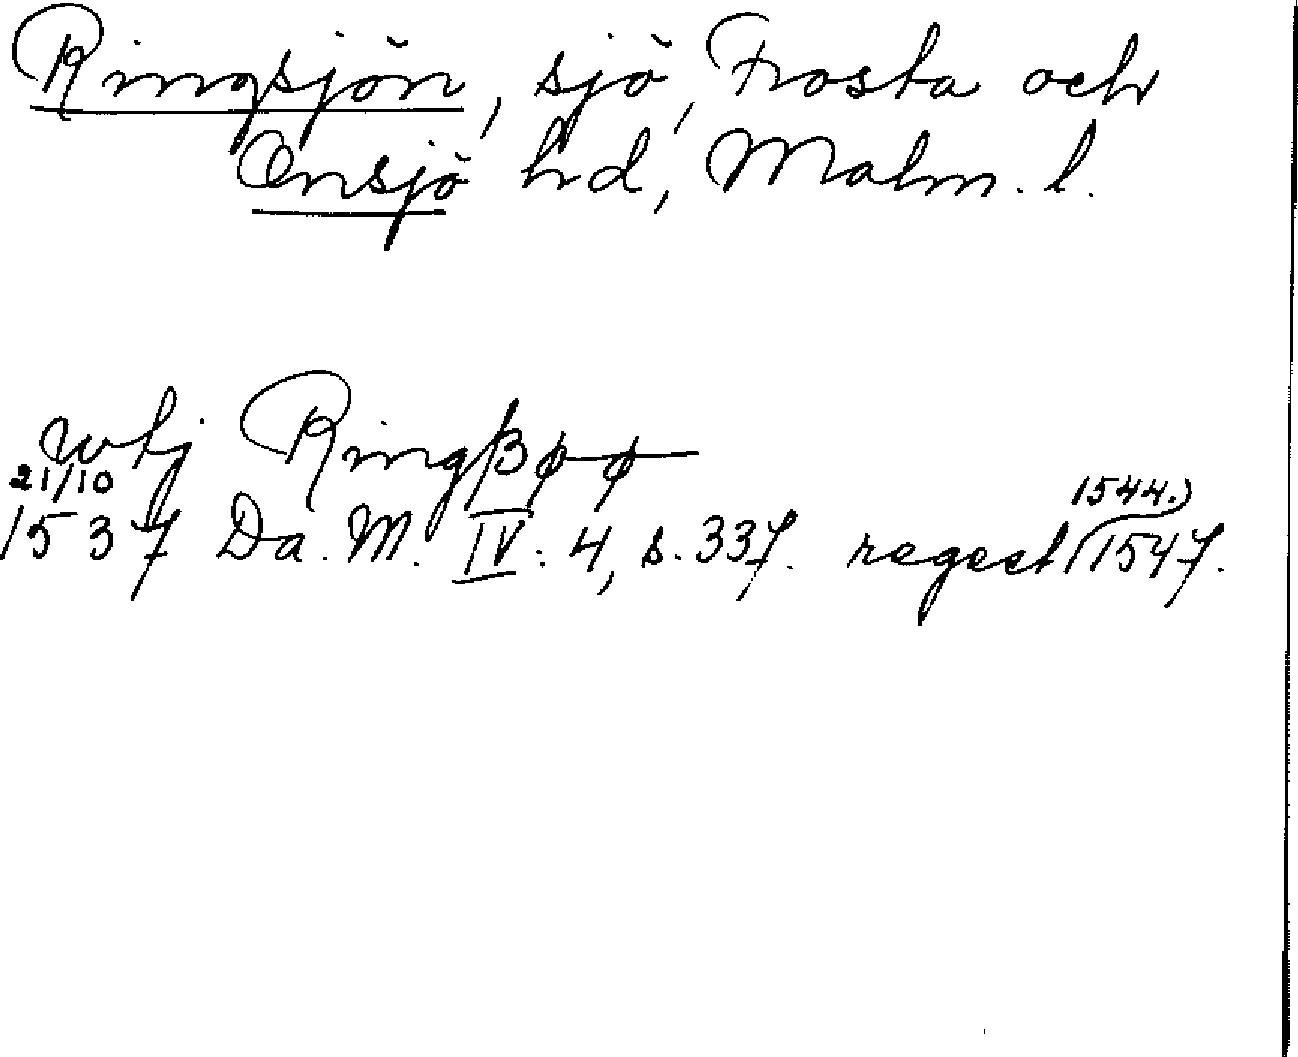 Ringsjön, sjö, Frosta och
Onsjö hd, Malm. l.
whj Ringßøø
21/10
1537 Da. M. IV: 4, s. 337. regest (1547.
1544.)